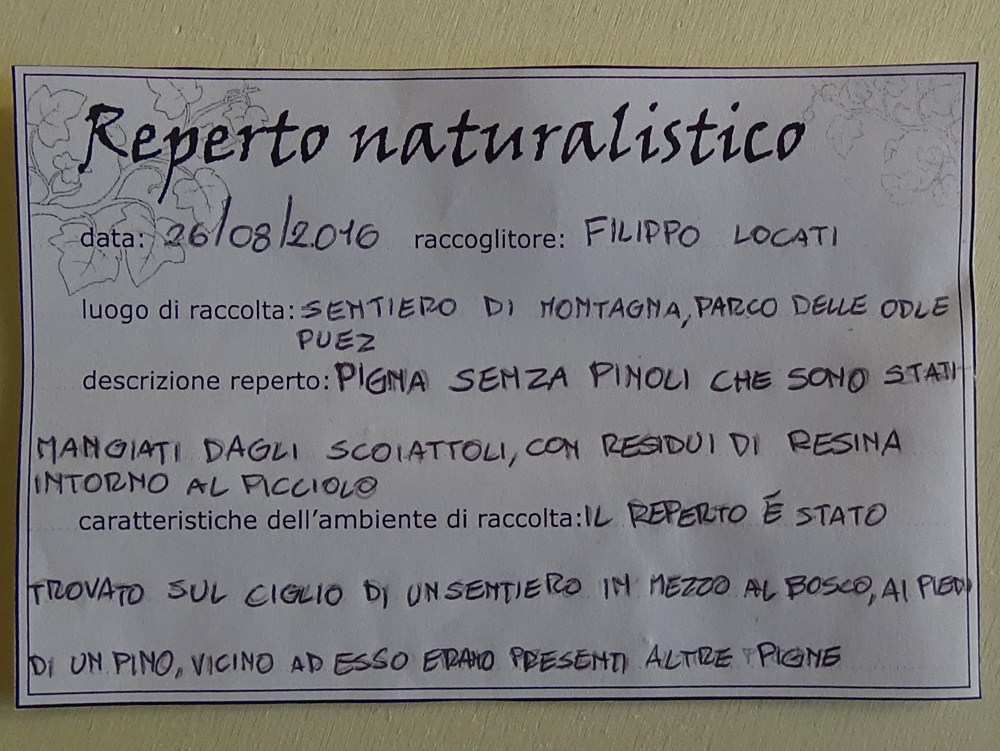 Reperto naturalistico
data: 26/08/2016 raccoglitore: FILIPPO LOCATI
luogo di raccolta: SENTIERO DI MONTAGNA, PARCO DELLE ODLE
PUEZ
descrizione reperto: PIGNA SENZA PINOLI CHE SONO STATI
MANGIATI DAGLI SCOIATTOLI, CON RESIDUI DI RESINA
INTORNO AL PICCIOLO
caratteristiche dell'ambiente di raccolta: IL REPERTO É STATO
TROVATO SUL CIGLIO DI UN SENTIERO IN MEZZO AL BOSCO, AI PIEDI
DI UN PINO, VICINO AD ESSO ERANO PRESENTI ALTRE PIGNE